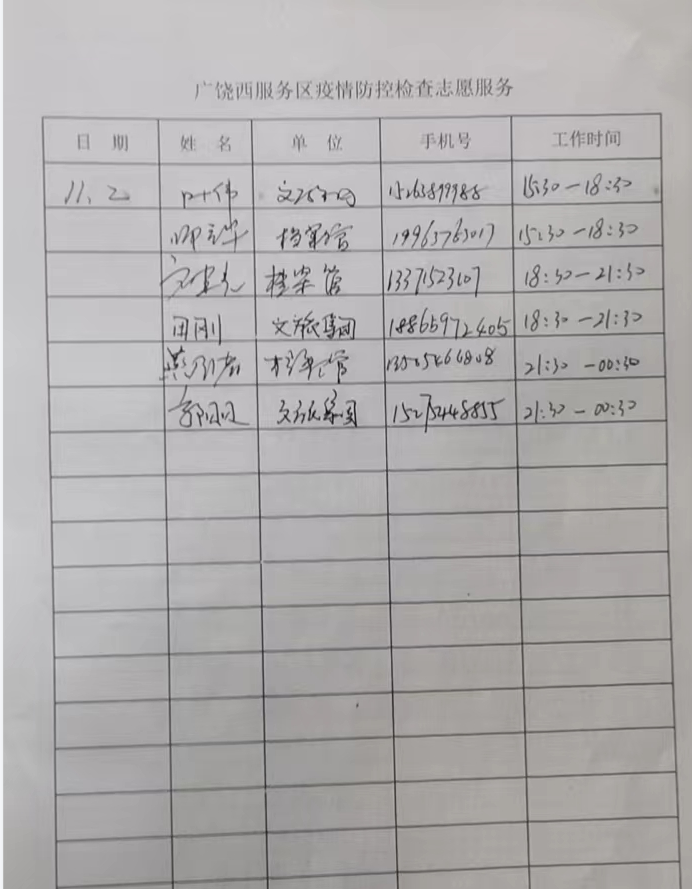 广饶西服务区疫情防控检查志愿服务
日 期 姓 名 单 位 手机号 工作时间
11.2 叶伟 15263899988 15:30-18:30
档案馆 19963763017 15:30-18:30
档案馆 13371523107 18:30-21:30
田刚 文旅集团 18865972405 18:30-21:30
档案馆 21:30-00:30
文旅集团 15275448855 21:30-00:30